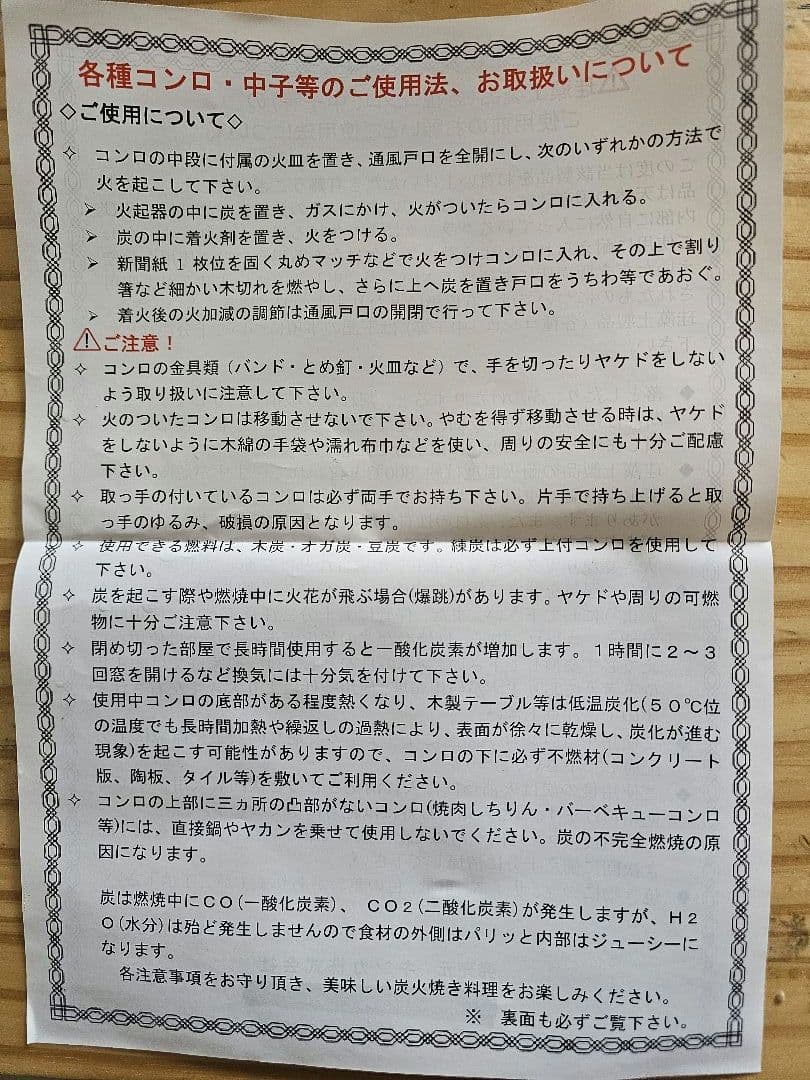 各種コンロ・中子等のご使用法、お取扱いについて
◇ご使用について◇
✧ コンロの中段に付属の火皿を置き、通風戸口を全開にし、次のいずれかの方法で
火を起こして下さい。
➢ 火起器の中に炭を置き、ガスにかけ、火がついたらコンロに入れる。
➢ 炭の中に着火剤を置き、火をつける。
➢ 新聞紙1枚位を固く丸めマッチなどで火をつけコンロに入れ、その上で割り
箸など細かい木切れを燃やし、さらに上へ炭を置き戸口をうちわ等であおぐ。
➢ 着火後の火加減の調節は通風戸口の開閉で行って下さい。
⚠ご注意！
✧ コンロの金具類（バンド・とめ釘・火皿など）で、手を切ったりヤケドをしない
よう取り扱いに注意して下さい。
✧ 火のついたコンロは移動させないで下さい。やむを得ず移動させる時は、ヤケド
をしないように木綿の手袋や濡れ布巾などを使い、周りの安全にも十分ご配慮
下さい。
✧ 取っ手の付いているコンロは必ず両手でお持ち下さい。片手で持ち上げると取
っ手のゆるみ、破損の原因となります。
✧ 使用できる燃料は、木炭・オガ炭・豆炭です。練炭は必ず上付コンロを使用して
下さい。
✧ 炭を起こす際や燃焼中に火花が飛ぶ場合(爆跳)があります。ヤケドや周りの可燃
物に十分ご注意下さい。
✧ 閉め切った部屋で長時間使用すると一酸化炭素が増加します。１時間に２～３
回窓を開けるなど換気には十分気を付けて下さい。
✧ 使用中コンロの底部がある程度熱くなり、木製テーブル等は低温炭化(５０℃位
の温度でも長時間加熱や繰返しの過熱により、表面が徐々に乾燥し、炭化が進む
現象)を起こす可能性がありますので、コンロの下に必ず不燃材(コンクリート
版、陶板、タイル等)を敷いてご利用ください。
✧ コンロの上部に三ヵ所の凸部がないコンロ(焼肉しちりん・バーベキューコンロ
等)には、直接鍋やヤカンを乗せて使用しないでください。炭の不完全燃焼の原
因になります。
炭は燃焼中にＣＯ(一酸化炭素)、ＣＯ２(二酸化炭素)が発生しますが、Ｈ２
Ｏ(水分)は殆ど発生しませんので食材の外側はパリッと内部はジューシーに
なります。
各注意事項をお守り頂き、美味しい炭火焼き料理をお楽しみください。
※ 裏面も必ずご覧下さい。